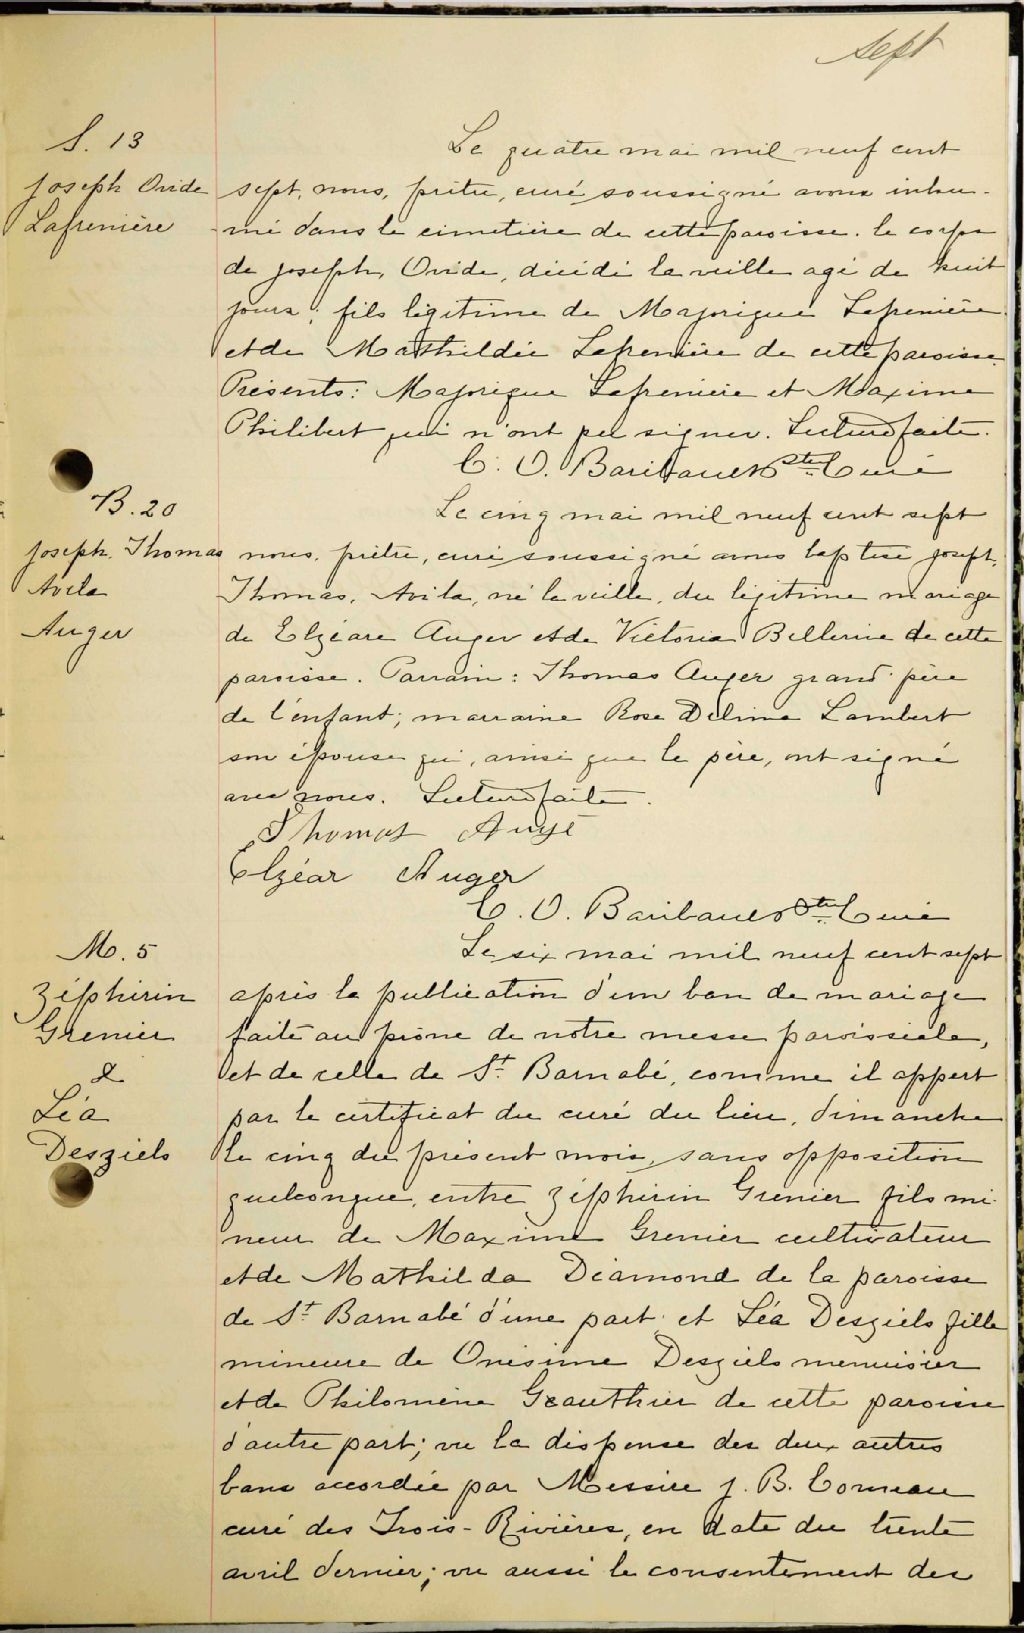 sept
S. 13
Joseph Ovide
Lafrenière
Le quatre mai mil neuf cent
sept, nous, prêtre, curé soussigné avons inhu-
mé dans le cimetière de cette paroisse. le corps
de Joseph, Ovide, décédé la veille agé de huit
jours; fils légitime de Majorique Lafrenière
et de Mathildée Lafrenière de cette paroisse.
Présents: Majorique Lafrenière et Maxime
Philibert qui n'ont pu signer. Lecture faite.
C. O. Baribault Ptre Curé
B. 20
Joseph. Thomas
Avila
Auger
Le cinq mai mil neuf cent sept
nous, prêtre, curé soussigné avons baptisé Joseph,
Thomas, Avila, né la veille, du légitime mariage
de Elzéare Auger et de Victoria Bellerive de cette
paroisse. Parrain: Thomas Auger grand-père
de l'enfant; marraine Rose Délima Lambert
son épouse qui, ainsi que le père, ont signé
avec nous. Lecture faite.
Thomas Augé
Elzéar Auger
C. O. Baribault Ptre Curé
M. 5
Zéphirin
Grenier
&
Léa
Desziels
Le six mai mil neuf cent sept
après la publication d'un ban de mariage
faite au prône de notre messe paroissiale,
et de celle de St. Barnabé, comme il appert
par le certificat du curé du lieu, dimanche
le cinq du présent mois, sans opposition
quelconque, entre Zéphirin Grenier fils mi-
neur de Maxime Grenier cultivateur
et de Mathilda Diamond de la paroisse
de St. Barnabé d'une part et Léa Desziels fille
mineure de Onésime Desziels menuisier
et de Philomène Gauthier de cette paroisse
d'autre part; vu la dispense des deux autres
bans accordée par Messire J. B. Comeau
curé des Trois-Rivières, en date du trente
avril dernier; vu aussi le consentement des